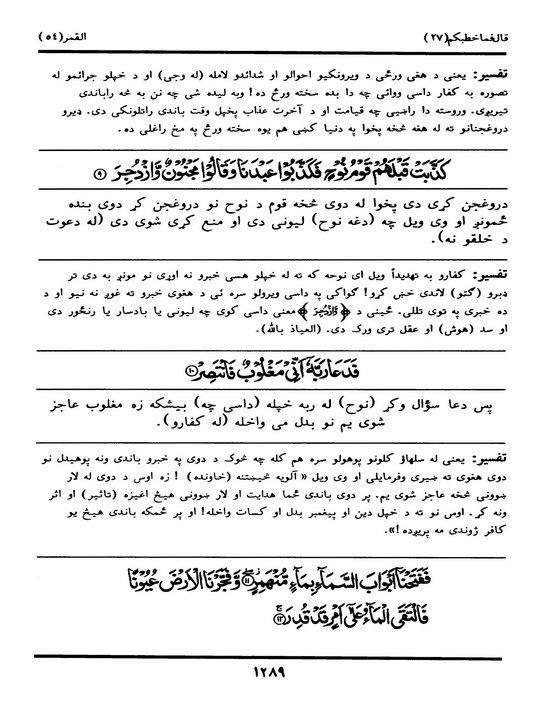 قال فما خطبكم (۲۷)
القمر (٥٤)
تفسیر: یعنی د هغی ورځی د ویرونکیو احوالو او شدائدو لامله (له وجی) او د خپلو جرائمو له
تصوره به کفار داسی ووائی چه دا بده سخته ورځ ده! وبه لیده شی چه نن به مخه راباندی
تیریږی. وروسته دا راښیی چه قیامت او د آخرت عذاب پخپل وقت باندی راتلونکی دی. ډیرو
دروغجنانو ته له هغه څخه پخوا په دنیا کښی هم یوه سخته ورځ په مخ راغلی ده.
كَذَّبَتْ قَبْلَهُمْ قَوْمُ نُوْحٍ فَكَذَّبُوْا عَبْدَنَا وَقَالُوْا مَجْنُوْنٌ وَّازْدُجِرَ ﴿۹﴾
دروغجن کړی دی پخوا له دوی څخه قوم د نوح نو دروغجن کړ دوی بنده
ځمونږ او وی ویل چه (دغه نوح) لیونی دی او منع کړی شوی دی (له دعوت
د خلقو نه).
تفسیر: کفارو به تهدیداً ویل ای نوحه که ته له خپلو هسی خبرو نه اوړی نو مونږ به دی تر
ډبرو (ګټو) لاندی خښ کړو! ګواکی په داسی ویرولو سره ئی د هغوی خبرو ته غوږ نه نیو او د
ده خبری په توی تللی. ځینی د ﴿وَازْدُجِرَ﴾ معنی داسی کوی چه لیونی یا بادسار یا رنځور دی
او سد (هوش) او عقل تری ورک دی. (العیاذ بالله).
فَدَعَا رَبَّهٗٓ اَنِّيْ مَغْلُوْبٌ فَانْتَصِرْ ﴿۱۰﴾
پس دعا سؤال وکړ (نوح) له ربه خپله (داسی چه) بیشکه زه مغلوب عاجز
شوی یم نو بدل می واخله (له کفارو).
تفسیر: یعنی له سلهاؤ کلونو پوهولو سره هم کله چه څوک د دوی په خبرو باندی ونه پوهیدل نو
دوی هغوی ته ښیری وفرمایلی او وی ویل «آلویه څښتنه (خاونده) ! زه اوس د دوی له لار
ښوونی څخه عاجز شوی یم. پر دوی باندی ځما هدایت او لار ښوونی هیڅ اغیزه (تاثیر) او اثر
ونه کړ. اوس نو ته د خپل دین او پیغمبر بدل او کسات واخله! او پر ځمکه باندی هیڅ یو
کافر ژوندی مه پریږده!».
فَفَتَحْنَآ اَبْوَابَ السَّمَآءِ بِمَآءٍ مُّنْهَمِرٍ ﴿۱۱﴾ وَّفَجَّرْنَا الْاَرْضَ عُيُوْنًا
فَالْتَقَى الْمَآءُ عَلٰٓى اَمْرٍ قَدْ قُدِرَ ﴿۱۲﴾
۱۲۸۹